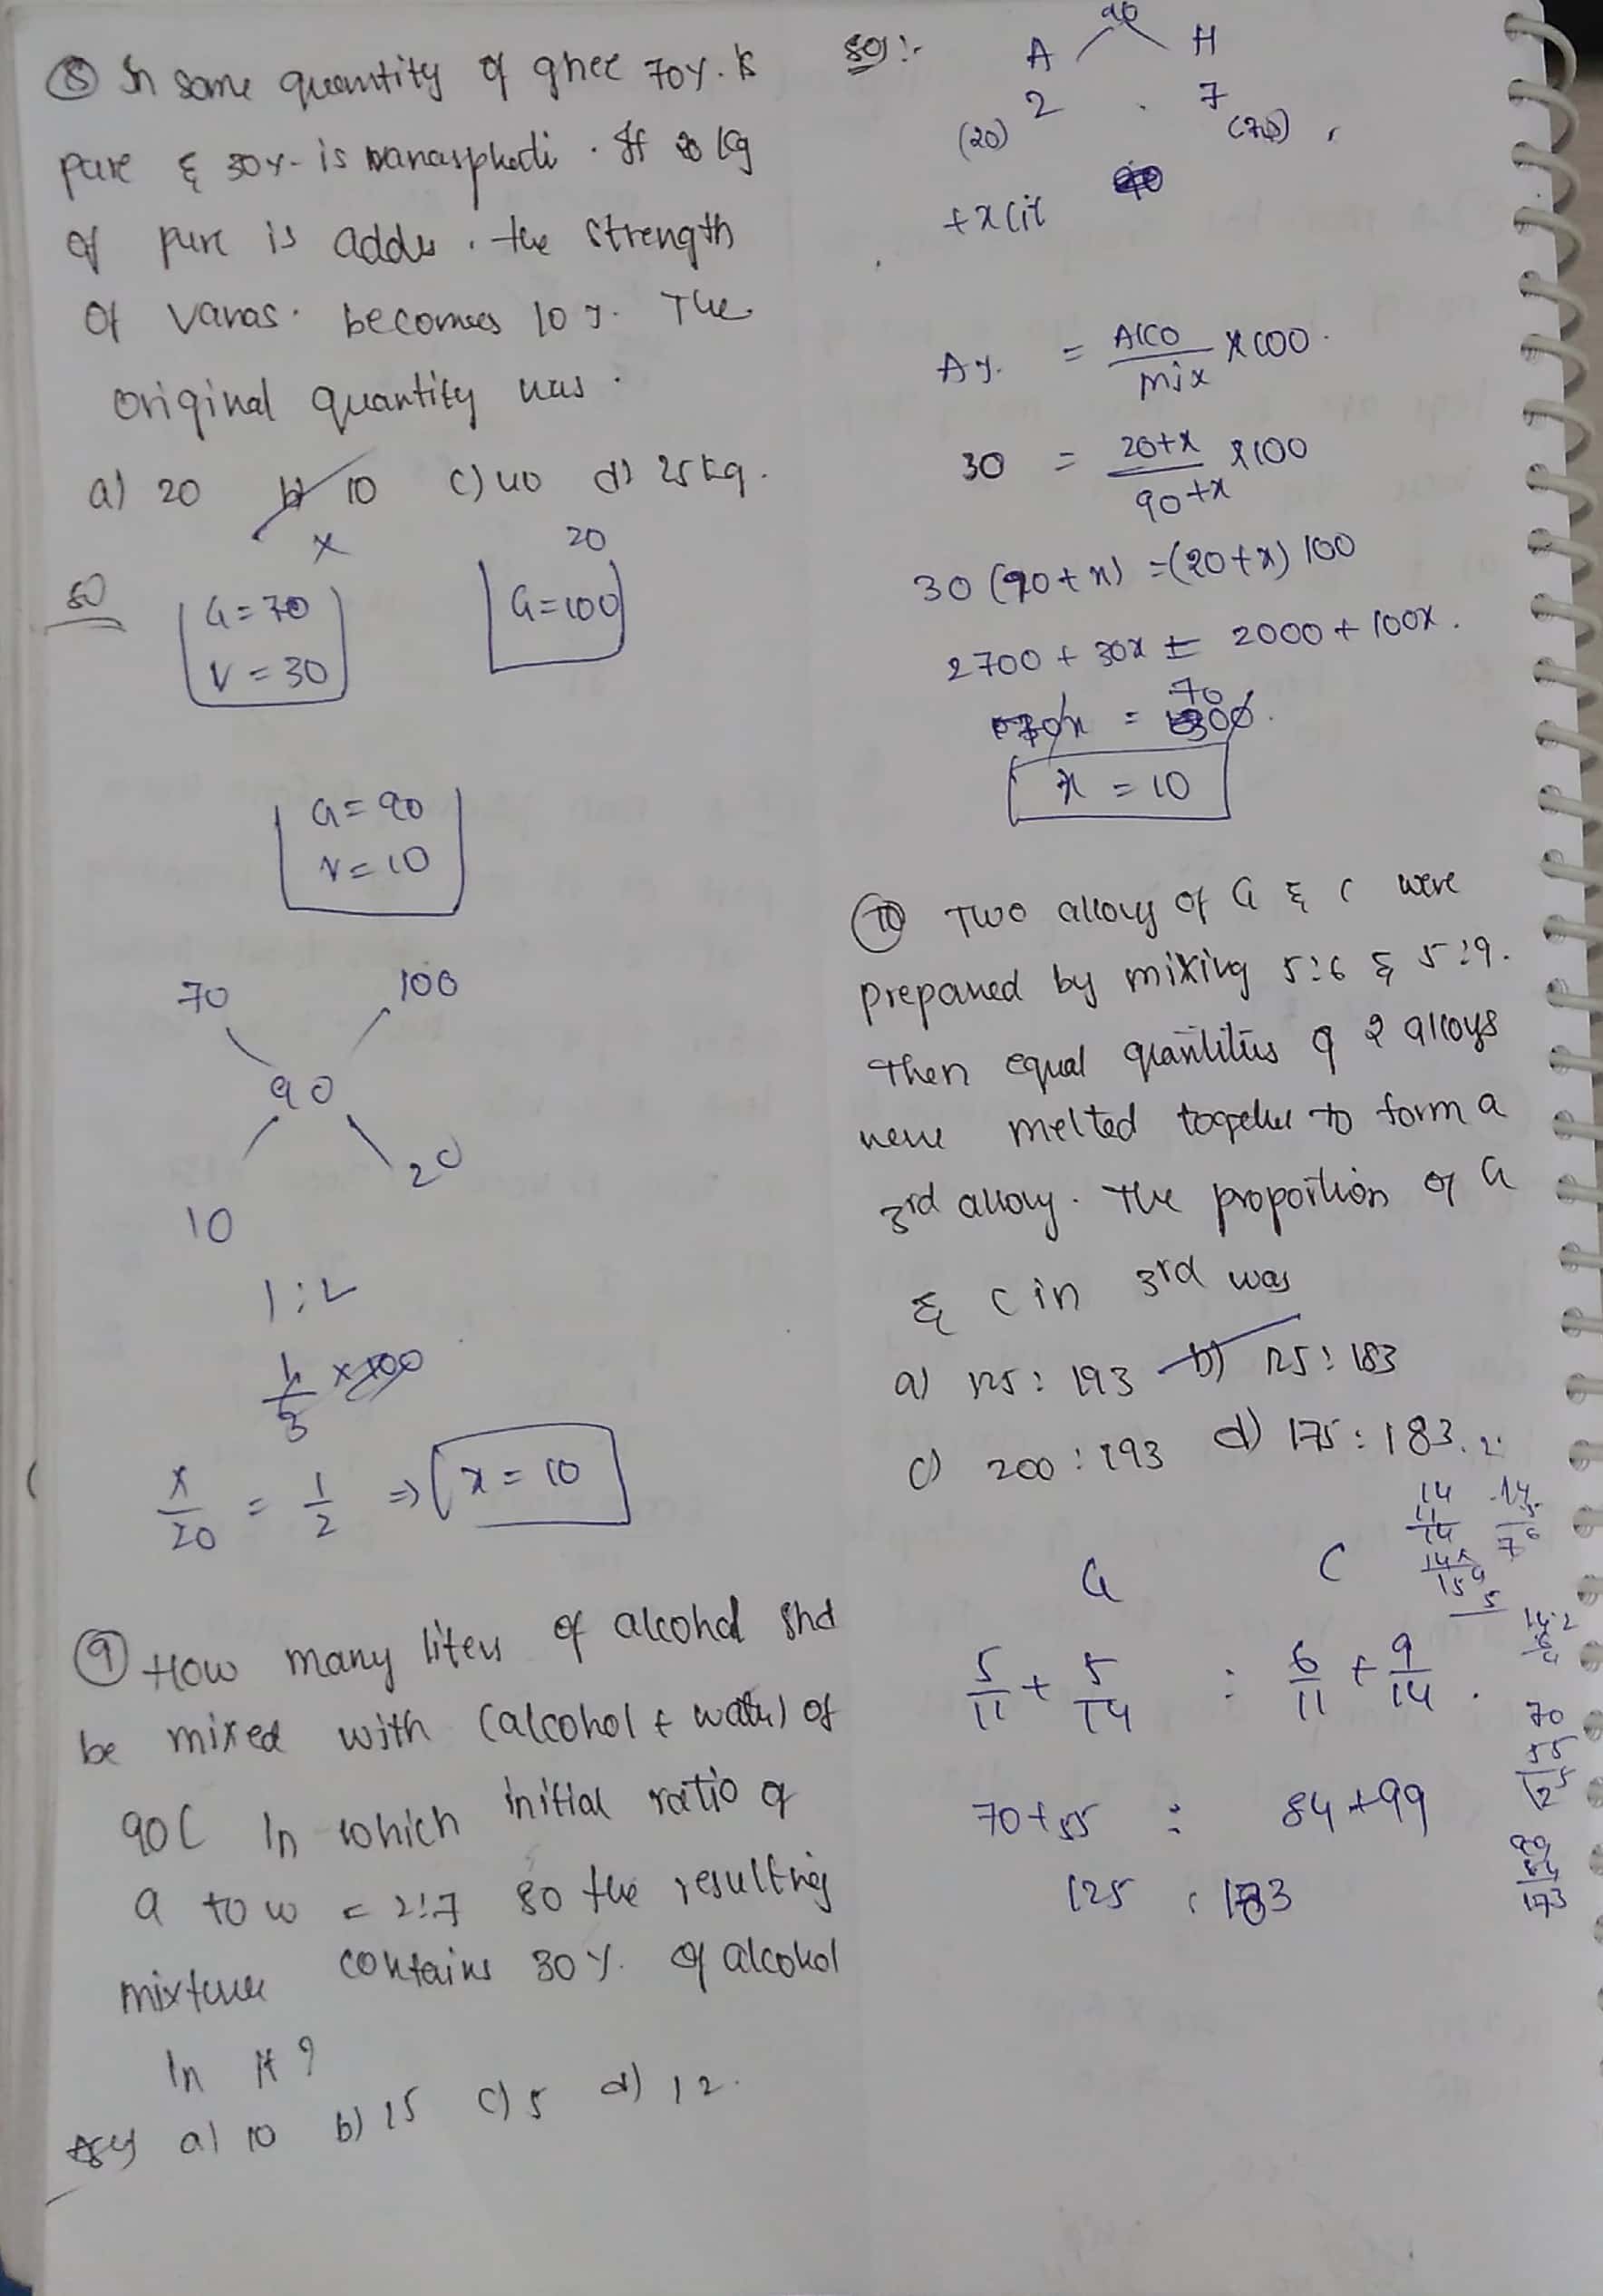 ⑧ In some quantity of ghee 70%. is
pure & 30%. is vanasphadi. If 20 kg
of pure is adds, the strength
of vanas. becomes 10 %. The
original quantity was.
a) 20 b) 10 c) 40 d) 25 kg.
x 20
G=70 G=100
V=30
G=90
V=10
70 100
90
10 20
1:2
x/20 = 1/2 ⇒ x = 10
⑨ How many liters of alcohol shd
be mixed with (alcohol + water) of
90l in which initial ratio of
a to w = 2:7 so the resulting
mixture contains 30%. of alcohol
In it?
a) 10 b) 15 c) 5 d) 12.
Sol:-
90
A H
2 7
(20) (70)
+x lit
A%. = Alco/mix × 100.
30 = 20+x/90+x × 100
30 (90+x) = (20+x) 100
2700 + 30x = 2000 + 100x.
70x = 700.
x = 10
⑩ Two alloys of G & C were
prepared by mixing 5:6 & 5:9.
Then equal quantities of 2 alloys
were melted together to form a
3rd alloy. The proportion of G
& C in 3rd was
a) 125: 193 b) 125: 183
c) 200: 193 d) 175: 183.
G C
5/11 + 5/14 : 6/11 + 9/14.
70+55 : 84+99
125 : 183
70
55
125
99
84